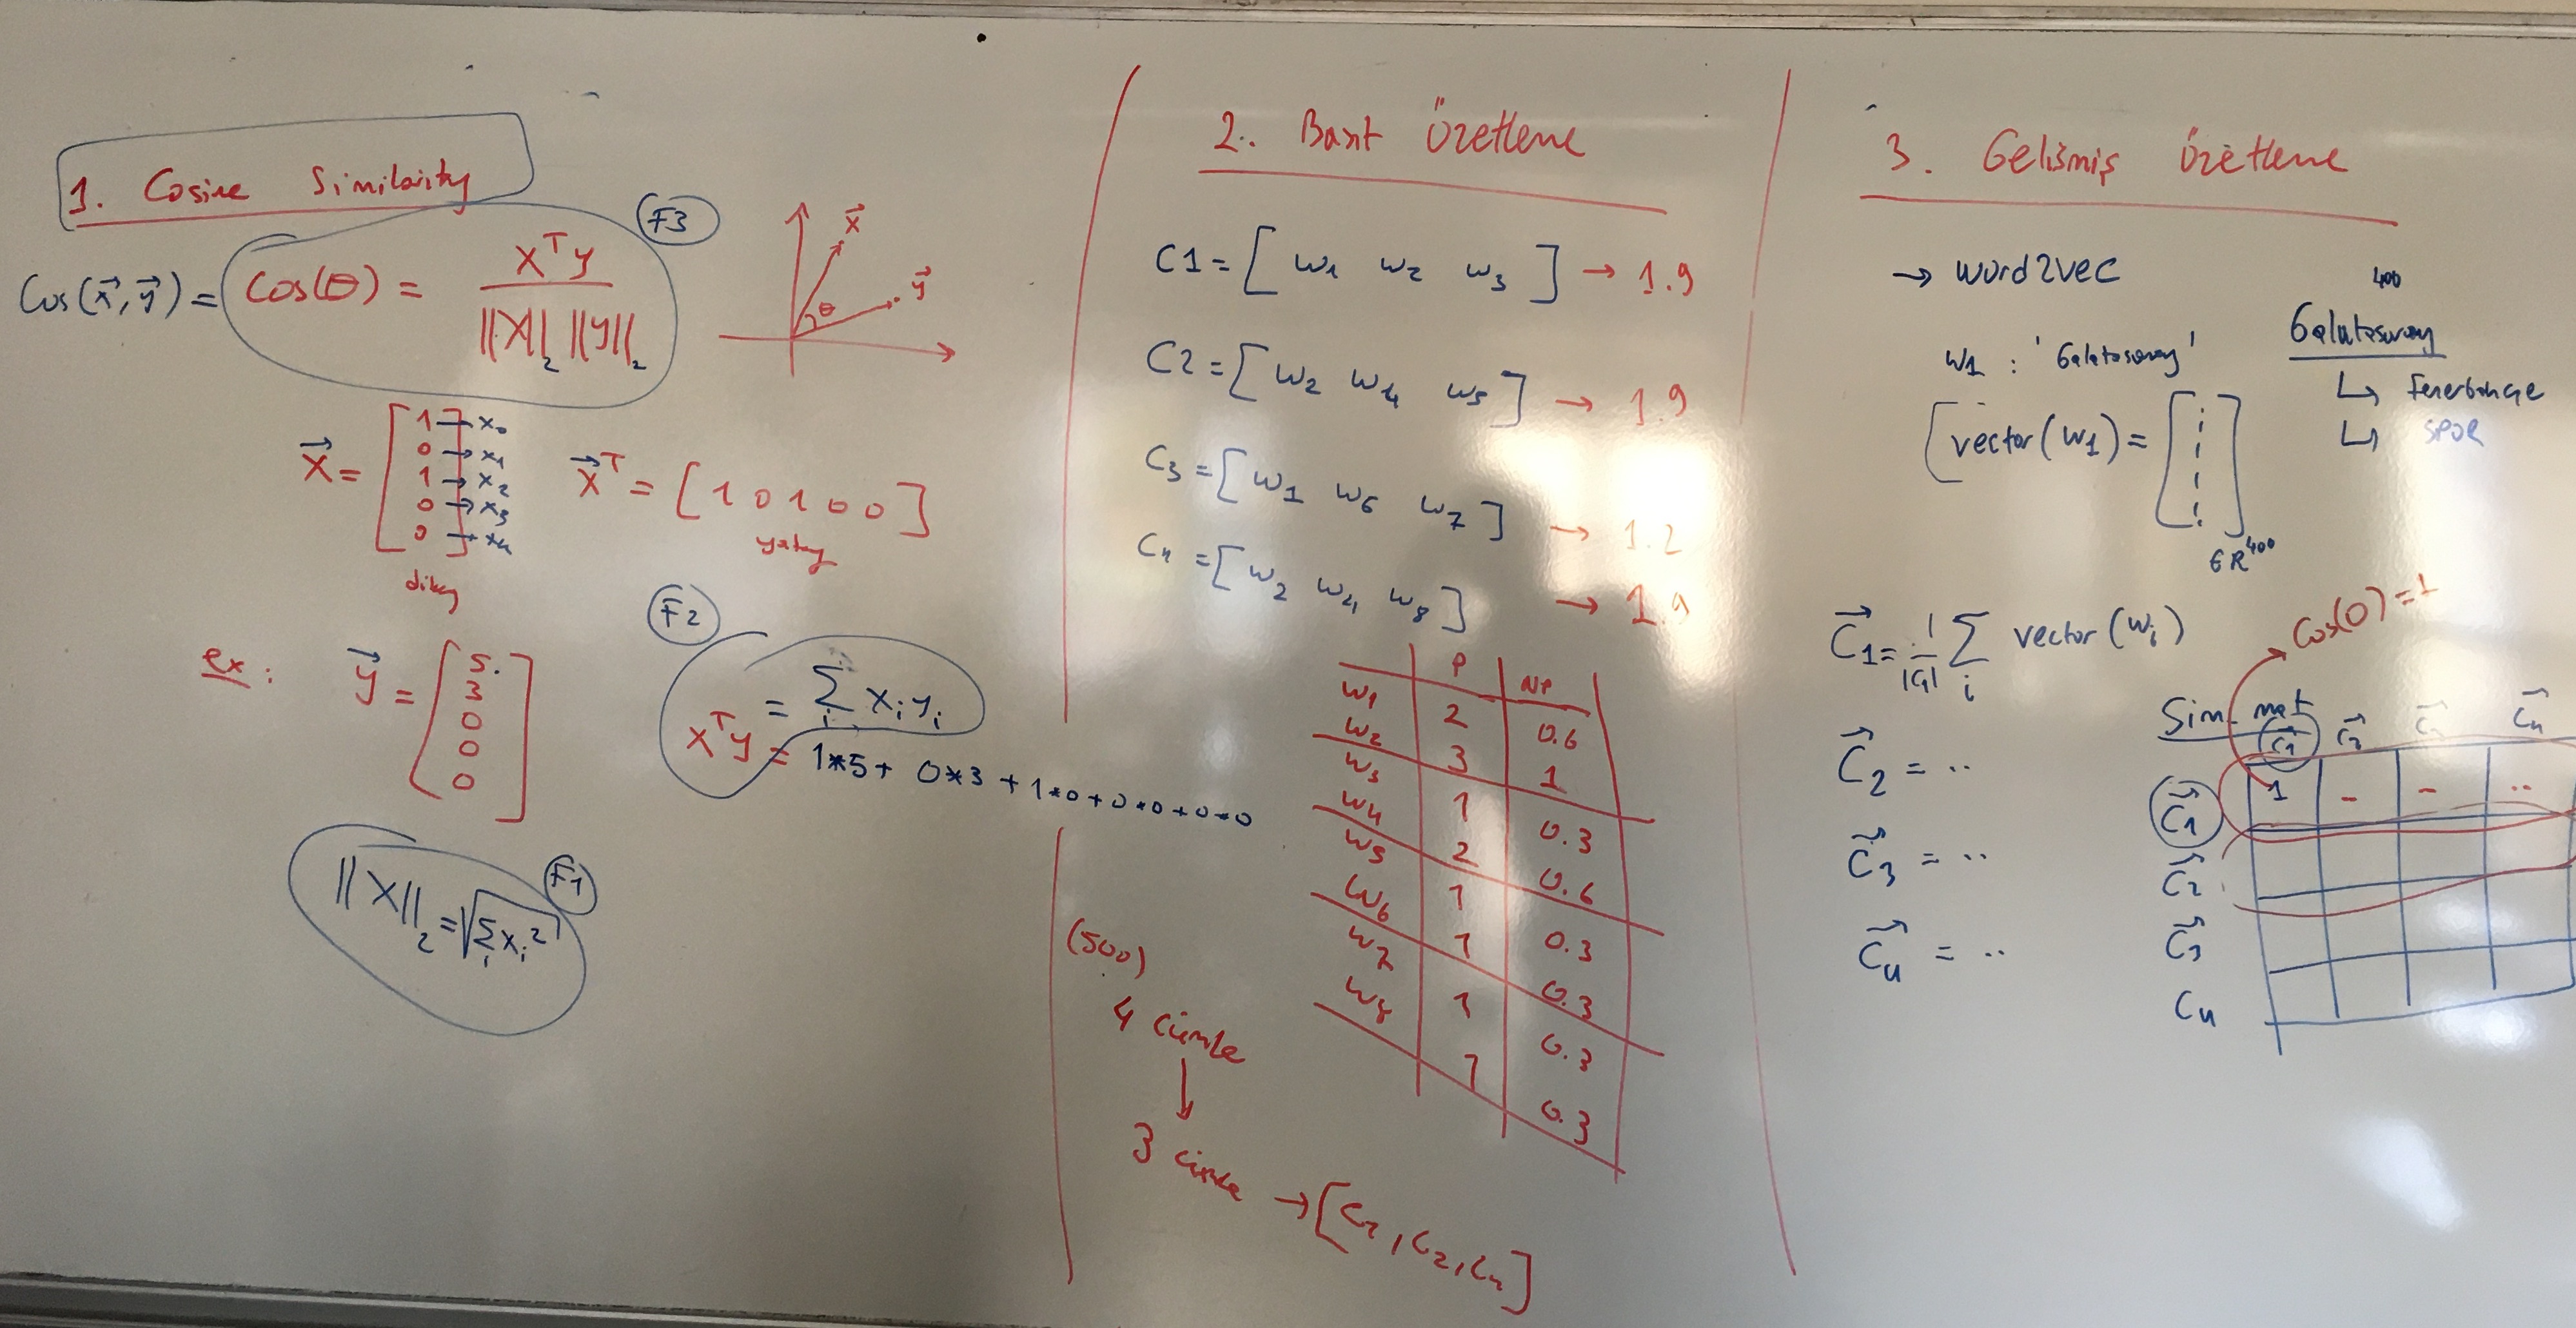 1. Cosine Similarity
F3
Cos(x⃗, y⃗) = Cos(θ) = xᵀy / ||x||₂ ||y||₂
x⃗
θ
y⃗
x⃗ = [1 0 1 0 0]
→ x₀
→ x₁
→ x₂
→ x₃
→ x₄
dikey
x⃗ᵀ = [1 0 1 0 0]
yatay
ex: y⃗ = [5 3 0 0 0]
F2
= Σᵢ xᵢyᵢ
xᵀy = 1*5 + 0*3 + 1*0 + 0*0 + 0*0
F1
||x||₂ = √Σᵢ xᵢ²
2. Basit Özetleme
C1 = [w1 w2 w3] → 1.9
C2 = [w2 w4 w5] → 1.9
C3 = [w1 w6 w7] → 1.2
C4 = [w2 w4 w8] → 1.9
P NP
w1 2 0.6
w2 3 1
w3 1 0.3
w4 2 0.6
w5 1 0.3
w6 1 0.3
w7 1 0.3
w8 1 0.3
(500)
4 cümle
↓
3 cümle → [C1, C2, C4]
3. Gelişmiş Özetleme
→ word2vec
400
w1 : 'Galatasaray'
Galatasaray
↳ Fenerbahçe
↳ SPOR
vector(w1) = [ ]
∈R⁴⁰⁰
C⃗1 = 1/|C1| Σᵢ vector(wᵢ)
C⃗2 = ..
C⃗3 = ..
C⃗4 = ..
Cos(0) = 1
Sim. mat
C⃗1 C⃗2 C⃗3 C⃗4
C⃗1 1 - - ..
C⃗2
C⃗3
C4